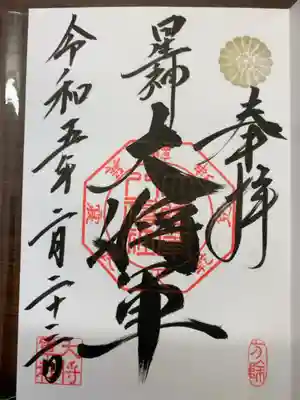 奉拝
星神
大将軍
令和五年二月二十二日
方除